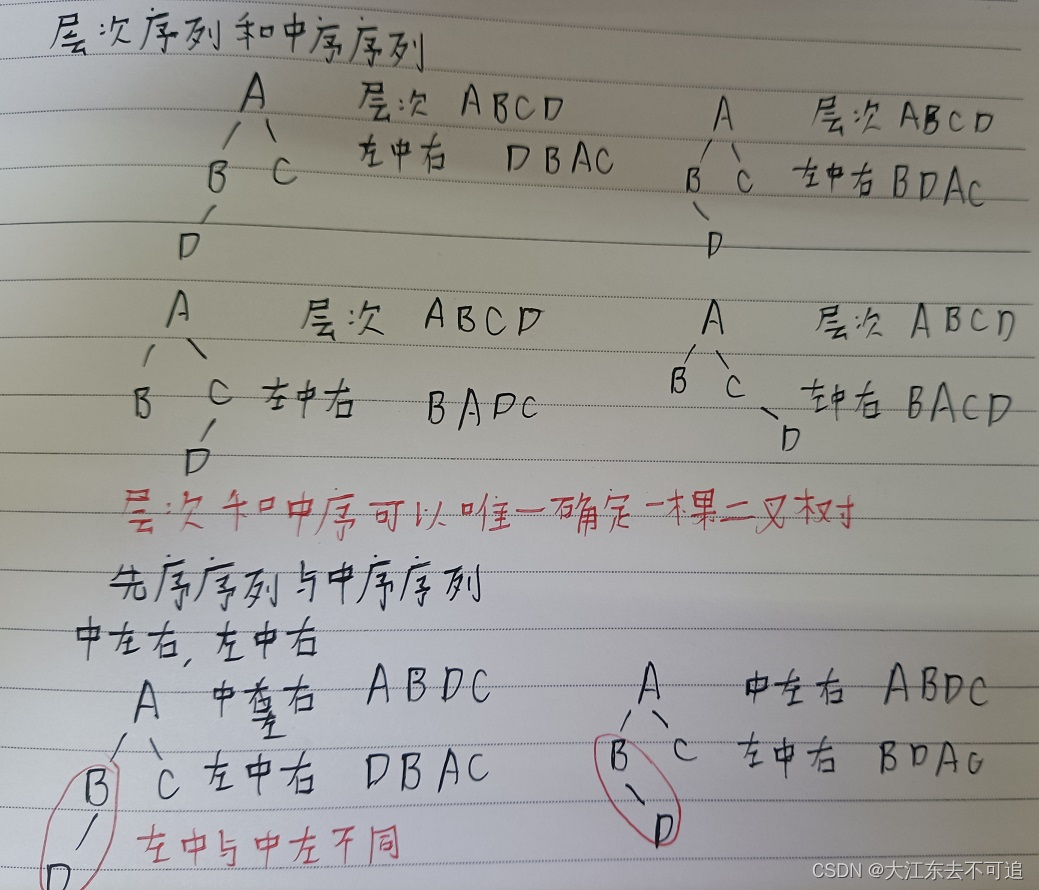 层次序列和中序序列
A 层次 ABCD A 层次 ABCD
B C 左中右 DBAC B C 左中右 BDAC
D D
A 层次 ABCD A 层次 ABCD
B C 左中右 BADC B C 左中右 BACD
D D
层次和中序可以唯一确定一棵二叉树
先序序列与中序序列
中左右, 左中右
A 中左右 ABDC A 中左右 ABDC
B C 左中右 DBAC B C 左中右 BDAC
D 左中与中左不同 D
CSDN @大江东去不可追